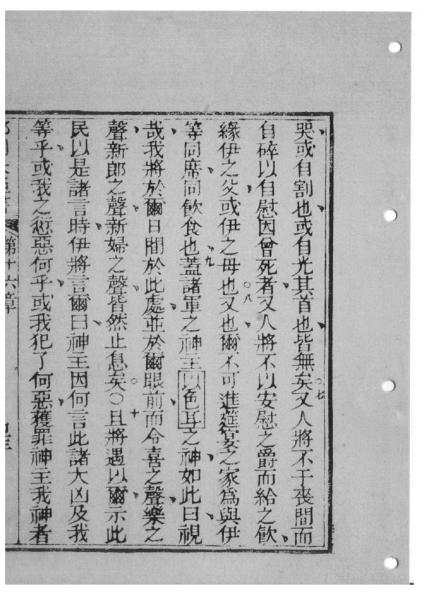 哭或自割也或自光其首也皆無矣○七又人將不于喪間而
自碎以自慰因曾死者又人將不以安慰之爵而給之飲
緣伊之父或伊之母也○八又也爾不可進筵宴之家為與伊
等同席同飲食也九蓋諸軍之神主以色耳之神如此曰視
哉我將於爾日間於此處並於爾眼前而令喜之聲樂之
聲新郎之聲新婦之聲皆然止息矣○十且將遇以爾示此
民以是諸言時伊將言爾曰神主因何言此諸大凶及我
等乎或我之術惡何乎或我犯了何惡獲罪神主我神者
第十六章